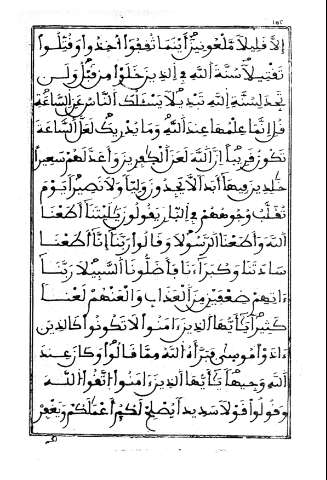 إلا قليلا ملعونين أينما ثقفوا أخذوا وقتلوا
تقتيلا سنة الله في الذين خلوا من قبل ولن
تجد لسنة الله تبديلا يسئلك الناس عن الساعة
قل إنما علمها عند الله وما يدريك لعل الساعة
تكون قريبا إن الله لعن الكفرين وأعد لهم سعيرا
خلدين فيها أبدا لا يجدون وليا ولا نصيرا يوم
تقلب وجوههم في النار يقولون يليتنا أطعنا
الله وأطعنا الرسولا وقالوا ربنا إنا أطعنا
سادتنا وكبراءنا فأضلونا السبيلا ربنا
ءاتهم ضعفين من العذاب والعنهم لعنا
كثيرا يأيها الذين ءامنوا لا تكونوا كالذين
ءاذوا موسى فبرأه الله مما قالوا وكان عند
الله وجيها يأيها الذين ءامنوا اتقوا الله
وقولوا قولا سديدا يصلح لكم أعملكم ويغفر